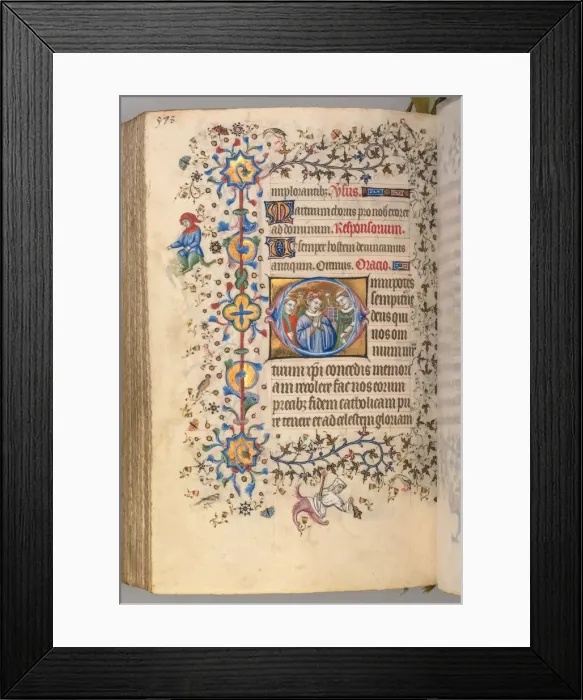 implorantib; Ꝟsus.
Martirum chorus pro nob oret
ad dominum. Responsorium.
Ut semper hostem devincamus
antiqum. Oremus. Oracio.
mnipotēs
sempit̄ne
deus qui
nos om
nium
tuum xp̄i concedis
am recolere fac nos eorum
precib; fidem catholicam pu
re tenere et ad celestem gloriam